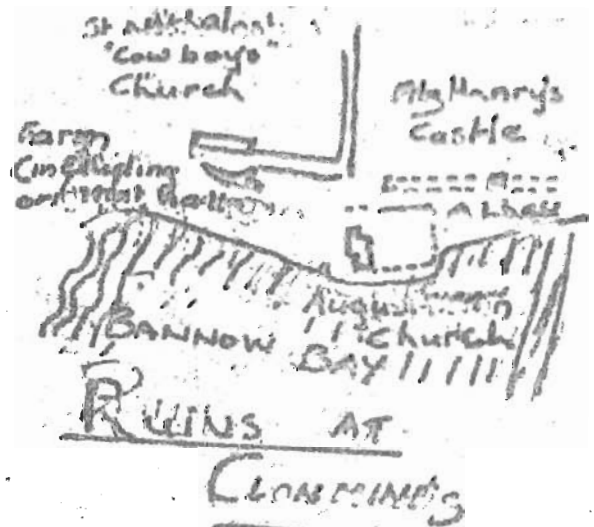 St Nicholas'
"Cowboys"
Church
FitzHenry's
Castle
Farm
Abbey
Augustinian
Church
BANNOW
BAY
RUINS AT
CLONMINES